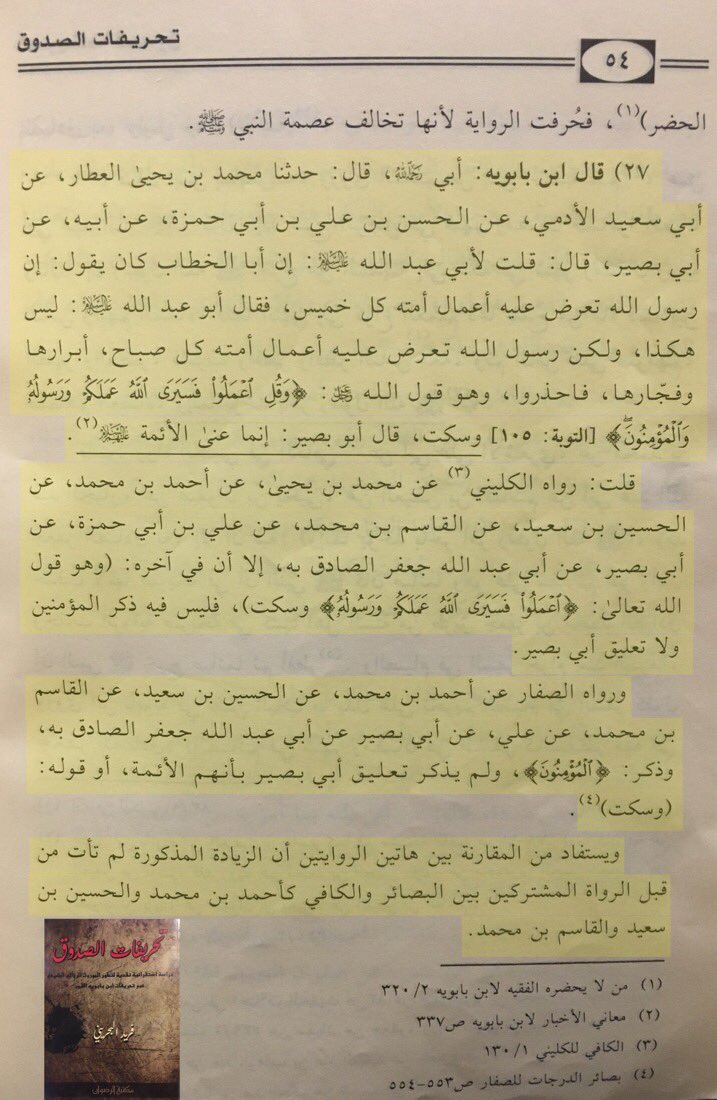 تحريفات الصدوق
٥٤
الحضر)(١)، فحُرفت الرواية لأنها تخالف عصمة النبي ﷺ.
٢٧) قال ابن بابويه: أبي رحمه الله، قال: حدثنا محمد بن يحيىٰ العطار، عن
أبي سعيد الأدمي، عن الحسن بن علي بن أبي حمزة، عن أبيه، عن
أبي بصير، قال: قلت لأبي عبد الله عليه السلام: إن أبا الخطاب كان يقول: إن
رسول الله تعرض عليه أعمال أمته كل خميس، فقال أبو عبد الله عليه السلام: ليس
هكذا، ولكن رسول الله تعرض عليه أعمال أمته كل صباح، أبرارها
وفجّارها، فاحذروا، وهو قول الله عز وجل: ﴿وَقُلِ ٱعْمَلُوا۟ فَسَيَرَى ٱللَّهُ عَمَلَكُمْ وَرَسُولُهُۥ
وَٱلْمُؤْمِنُونَۖ﴾ [التوبة: ١٠٥] وسكت، قال أبو بصير: إنما عنىٰ الأئمة عليهم السلام(٢).
قلت: رواه الكليني(٣) عن محمد بن يحيىٰ، عن أحمد بن محمد، عن
الحسين بن سعيد، عن القاسم بن محمد، عن علي بن أبي حمزة، عن
أبي بصير، عن أبي عبد الله جعفر الصادق به، إلا أن في آخره: (وهو قول
الله تعالىٰ: ﴿ٱعْمَلُوا۟ فَسَيَرَى ٱللَّهُ عَمَلَكُمْ وَرَسُولُهُۥ﴾ وسكت)، فليس فيه ذكر المؤمنين
ولا تعليق أبي بصير.
ورواه الصفار عن أحمد بن محمد، عن الحسين بن سعيد، عن القاسم
بن محمد، عن علي، عن أبي بصير عن أبي عبد الله جعفر الصادق به،
وذكر: ﴿ٱلْمُؤْمِنُونَ﴾، ولم يذكر تعليق أبي بصير بأنهم الأئمة، أو قوله:
(وسكت)(٤).
ويستفاد من المقارنة بين هاتين الروايتين أن الزيادة المذكورة لم تأت من
قبل الرواة المشتركين بين البصائر والكافي كأحمد بن محمد والحسين بن
سعيد والقاسم بن محمد.
(١) من لا يحضره الفقيه لابن بابويه ٢/ ٣٢٠
(٢) معاني الأخبار لابن بابويه ص٣٣٧
(٣) الكافي للكليني ١/ ١٣٠
(٤) بصائر الدرجات للصفار ص٥٥٣-٥٥٤
تحريفات الصدوق
فريد البحريني